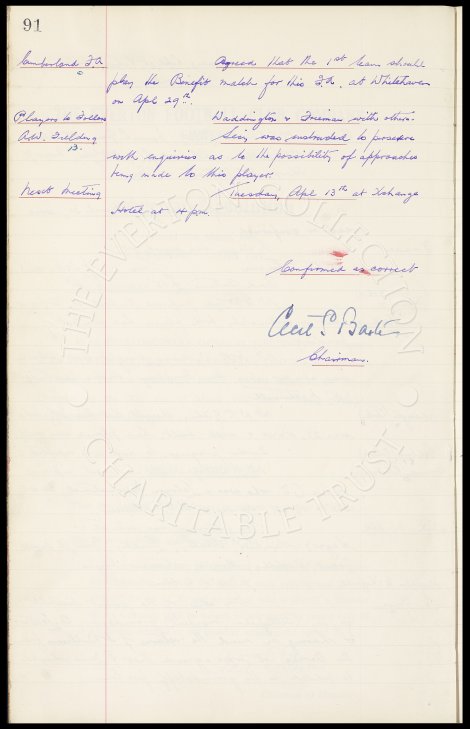 91
Cumberland F.A. Agreed that the 1st team should
play the Benefit match for this F.A. at Whitehaven
on Apl 29th.
Players to Follow Waddington & Freeman with others.
A.W. Fielding Secy was instructed to persevere
with enquiries as to the possibility of approaches
being made to this player.
Next Meeting Tuesday, Apl 13th at Exchange
Hotel at 4 pm.
Confirmed as correct
Cecil S Baxter
Chairman.
THE EVERTON COLLECTION
CHARITABLE TRUST